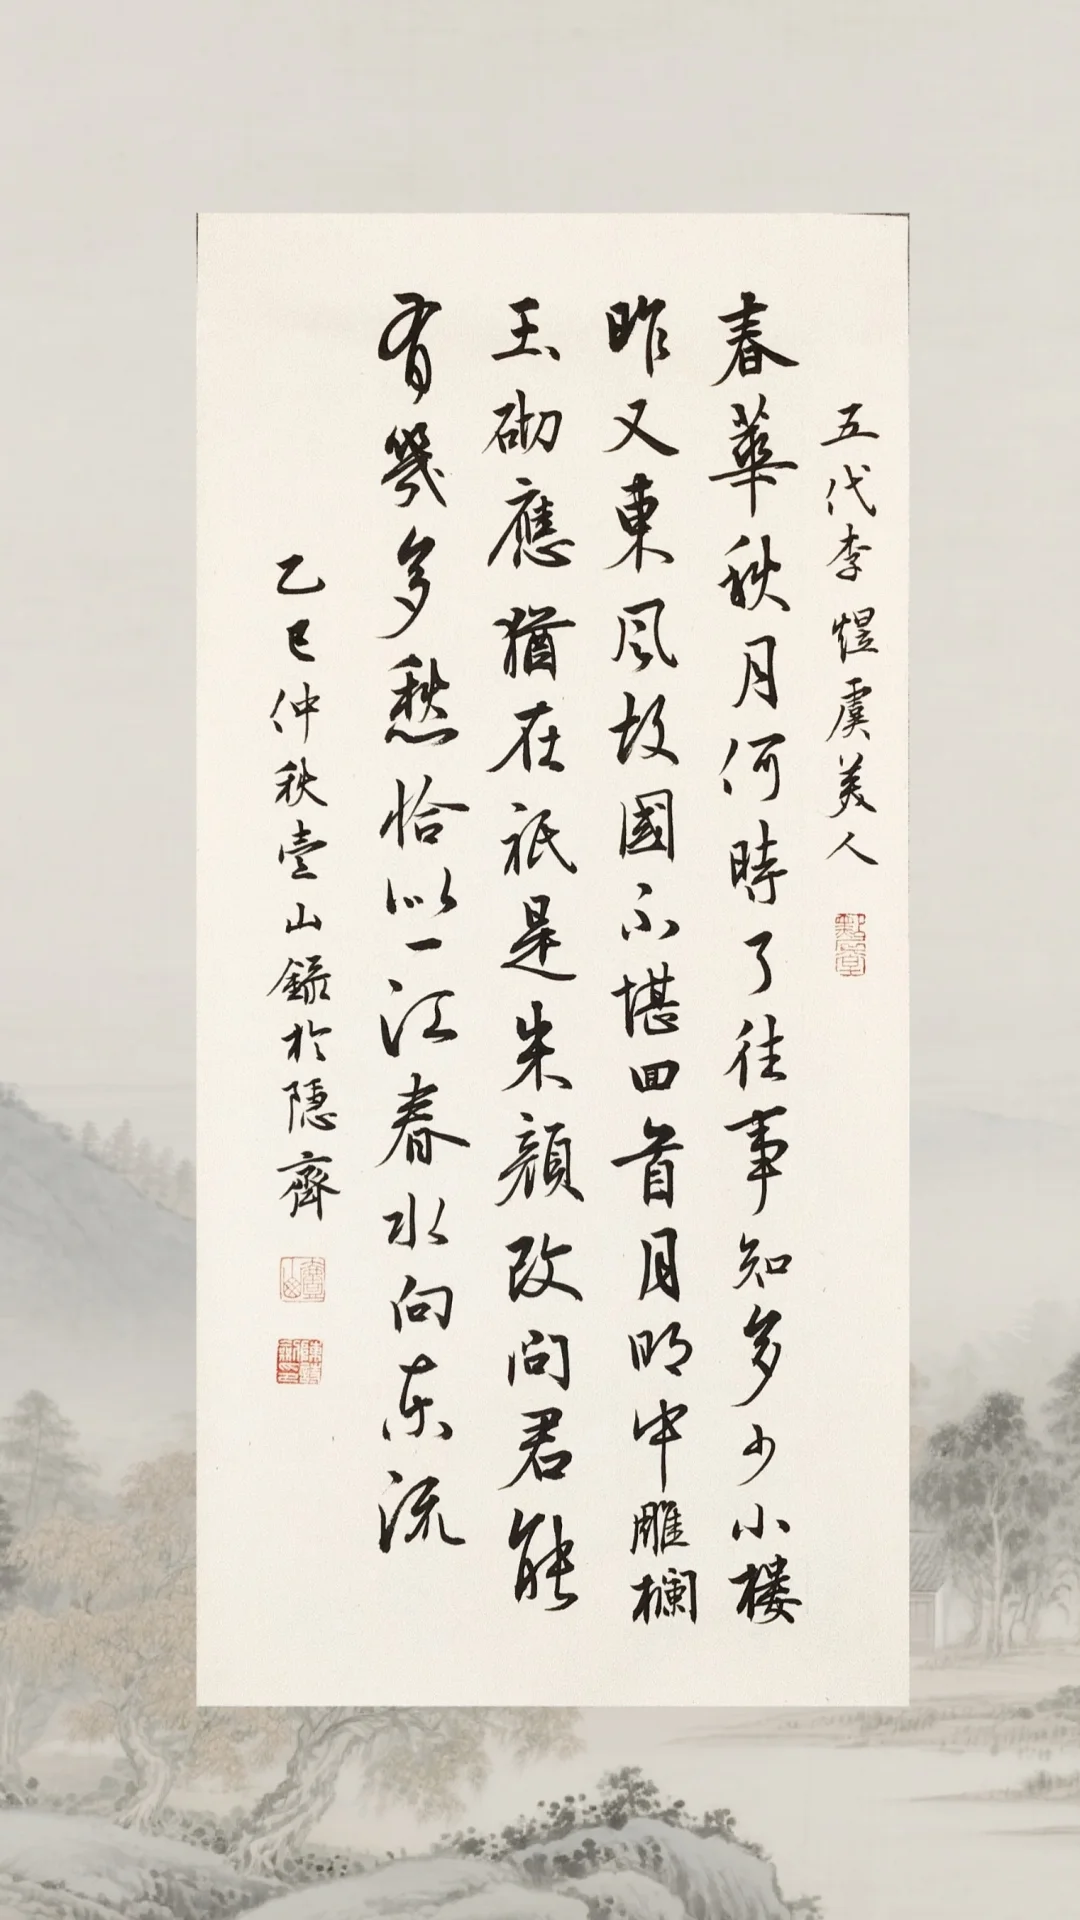 五代李煜虞美人
春華秋月何時了往事知多少小樓
昨又東風故國不堪回首月明中雕欄
玉砌應猶在祇是朱顏改問君能
有幾多愁恰似一江春水向东流
乙巳仲秋壹山錄於隱齋